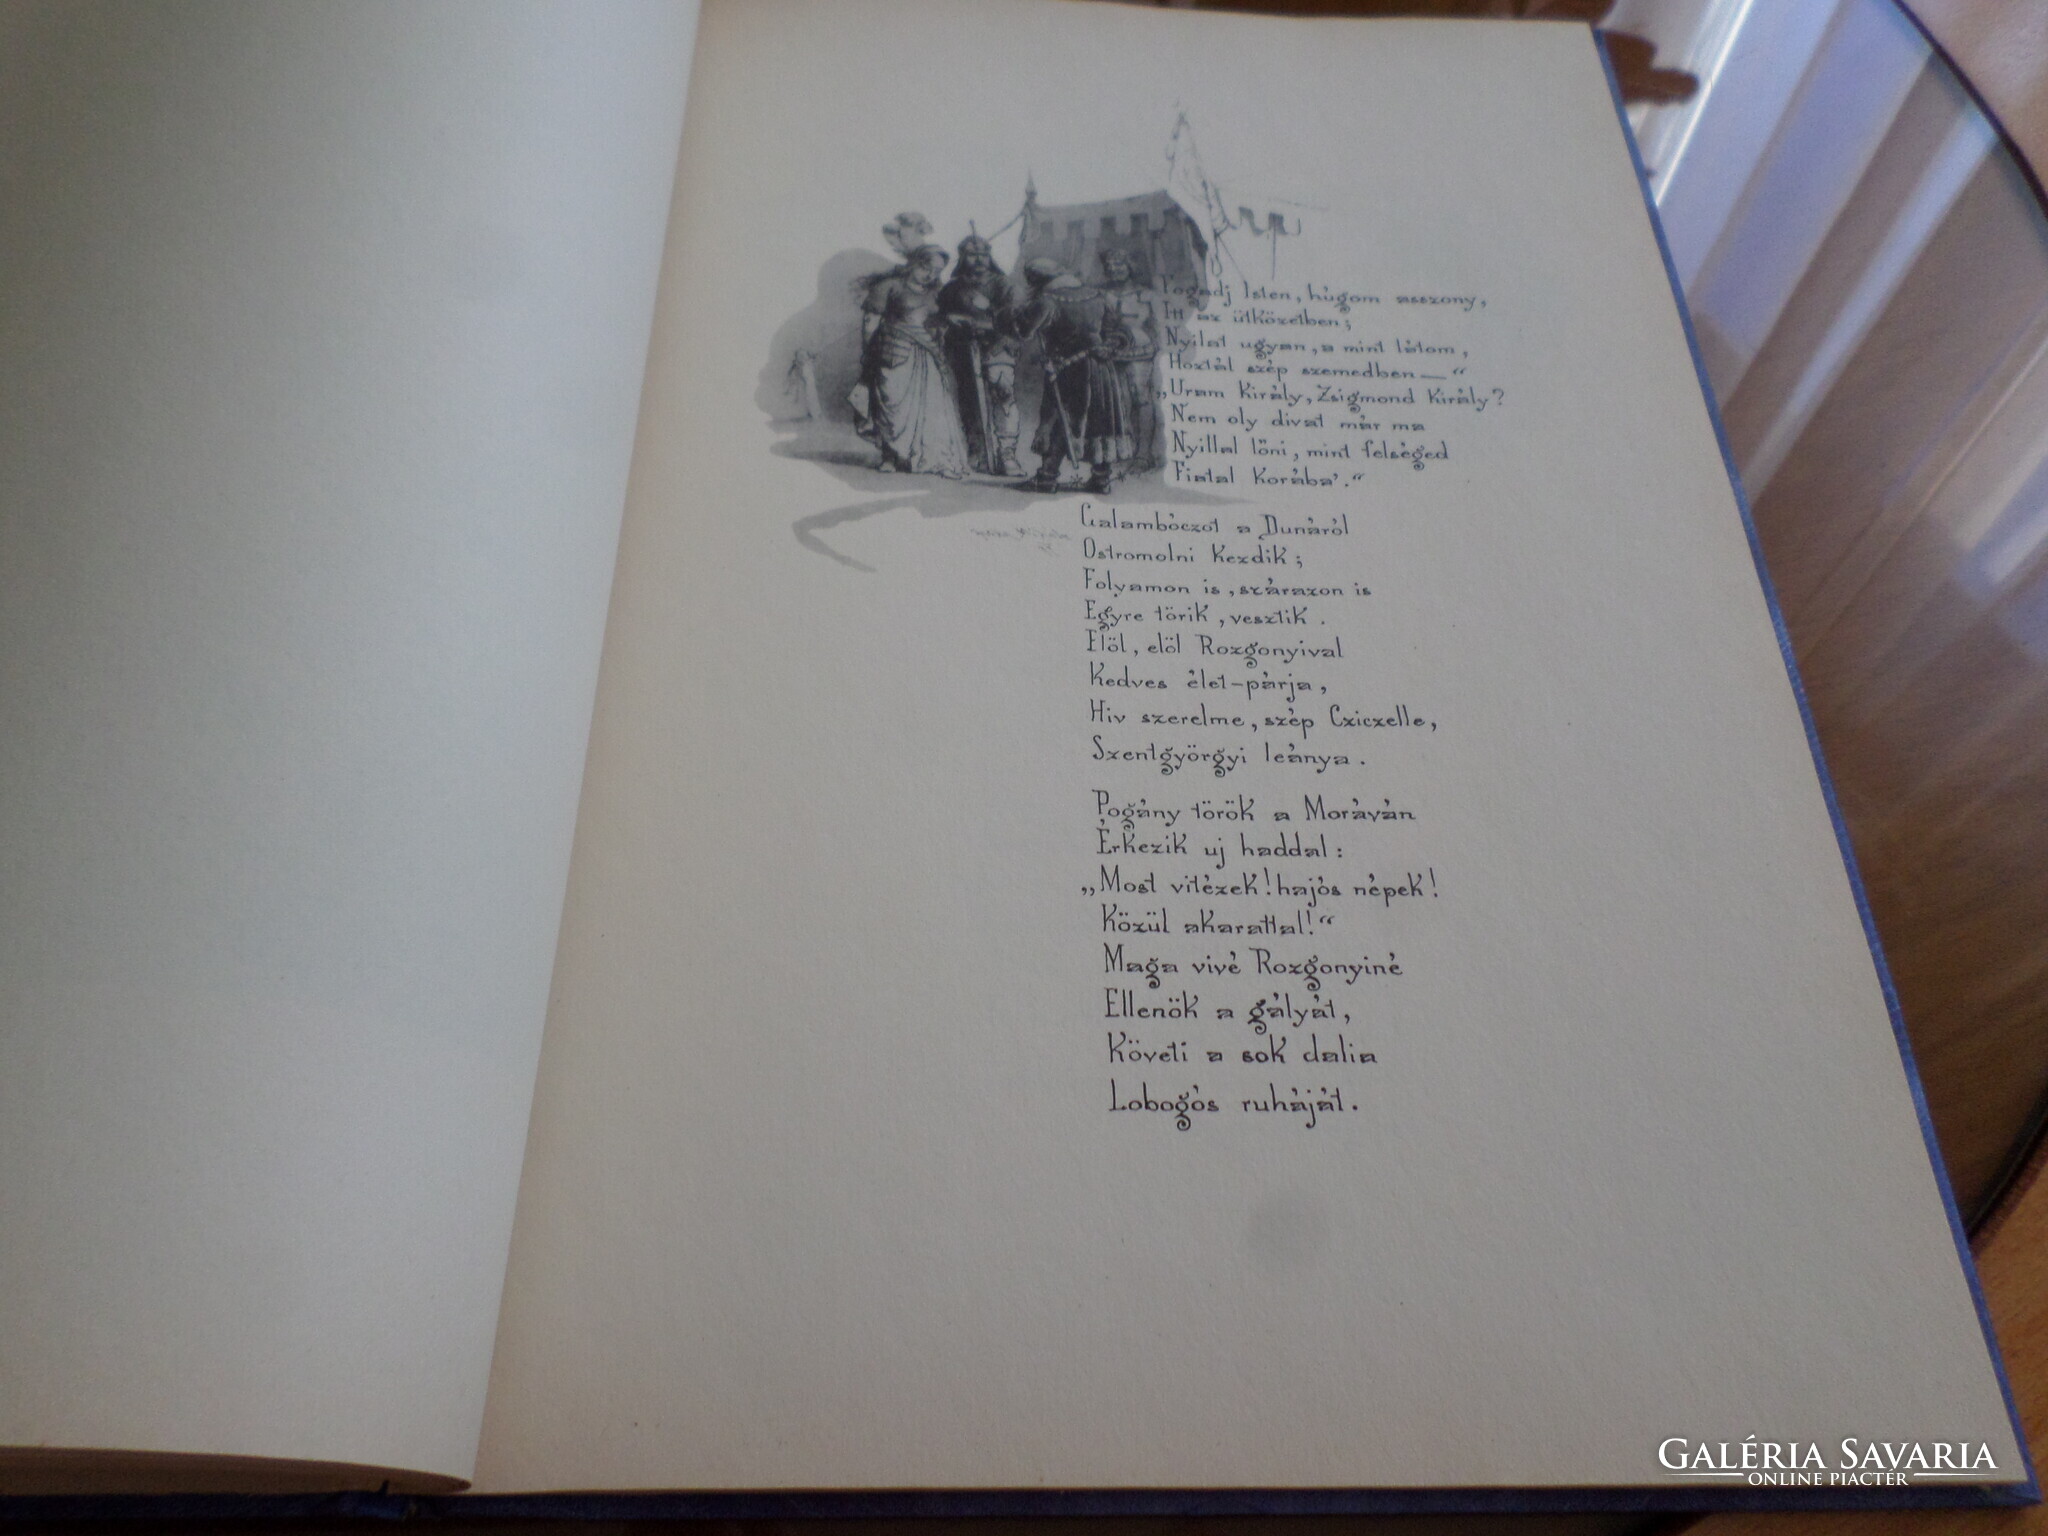 Fogadj Isten, húgom asszony,
Itt az ütközetben;
Nyilat ugyan, a mint látom,
Hoztál szép szemedben — “
„Uram Király, Zsigmond Király?
Nem oly divat már ma
Nyillal lőni, mint felséged
Fiatal Korába’.“
Galambóczot a Dunáról
Ostromolni Kezdik;
Folyamon is, szárazon is
Egyre törik, vesztik.
Elöl, elöl Rozgonyival
Kedves élet-párja,
Hiv szerelme, szép Cziczelle,
Szentgyörgyi leánya.
Pogány török a Moraván
Érkezik uj haddal:
„Most vitézek! hajós népek!
Közül akarattal!“
Maga vivé Rozgonyiné
Ellenök a gályát,
Követi a sok dalia
Lobogós ruháját.
GALÉRIA SAVARIA
ONLINE PIACTÉR